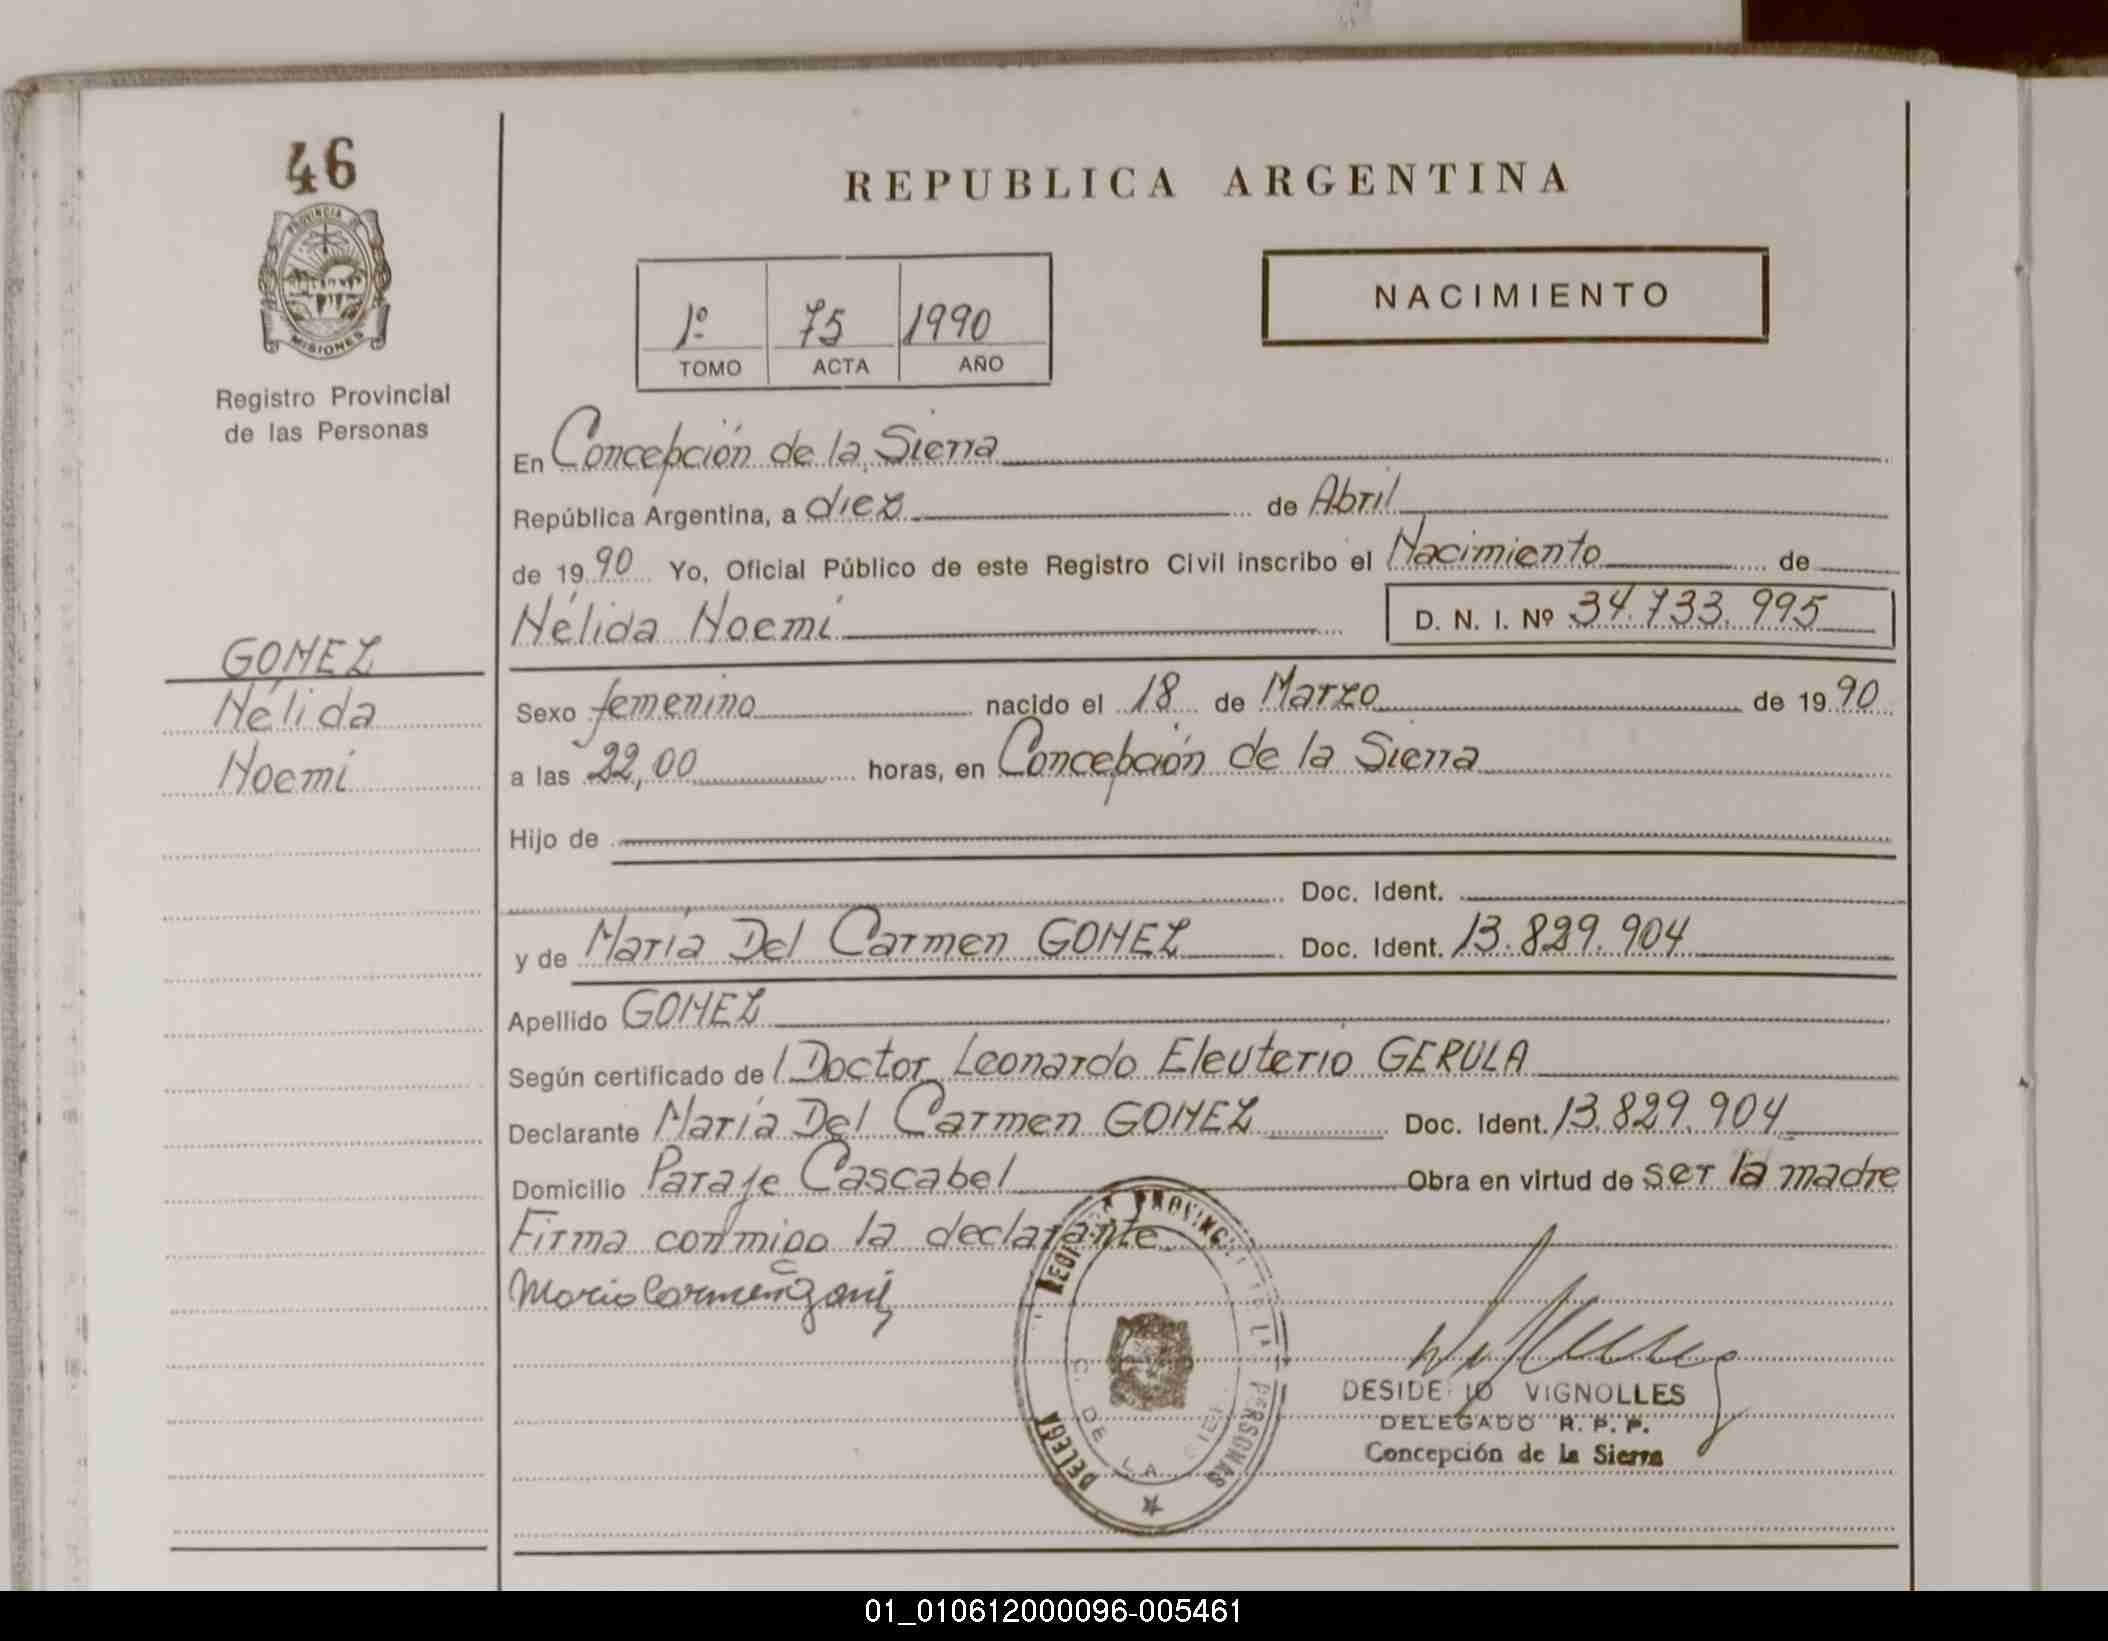 46
PROVINCIA DE
MISIONES
Registro Provincial
de las Personas
GOMEZ
Nélida
Noemi
REPUBLICA ARGENTINA
NACIMIENTO
1º 75 1990
TOMO ACTA AÑO
En Concepción de la Sierra
República Argentina, a diez de Abril
de 1990 Yo, Oficial Público de este Registro Civil inscribo el Nacimiento de
Nélida Noemi D. N. I. Nº 34.733.995
Sexo femenino nacido el 18 de Marzo de 1990
a las 22,00 horas, en Concepción de la Sierra
Hijo de
Doc. Ident.
y de María Del Carmen GOMEZ Doc. Ident. 13.829.904
Apellido GOMEZ
Según certificado del Doctor Leonardo Eleuterio GERULA
Declarante María Del Carmen GOMEZ Doc. Ident. 13.829.904
Domicilio Paraje Cascabel Obra en virtud de ser la madre
Firma conmigo la declarante
DE LA
PERSONAS
DELEGA
VIGNOLLES
DELEGADO R. P. P.
Concepción de la Sierra
01_010612000096-005461